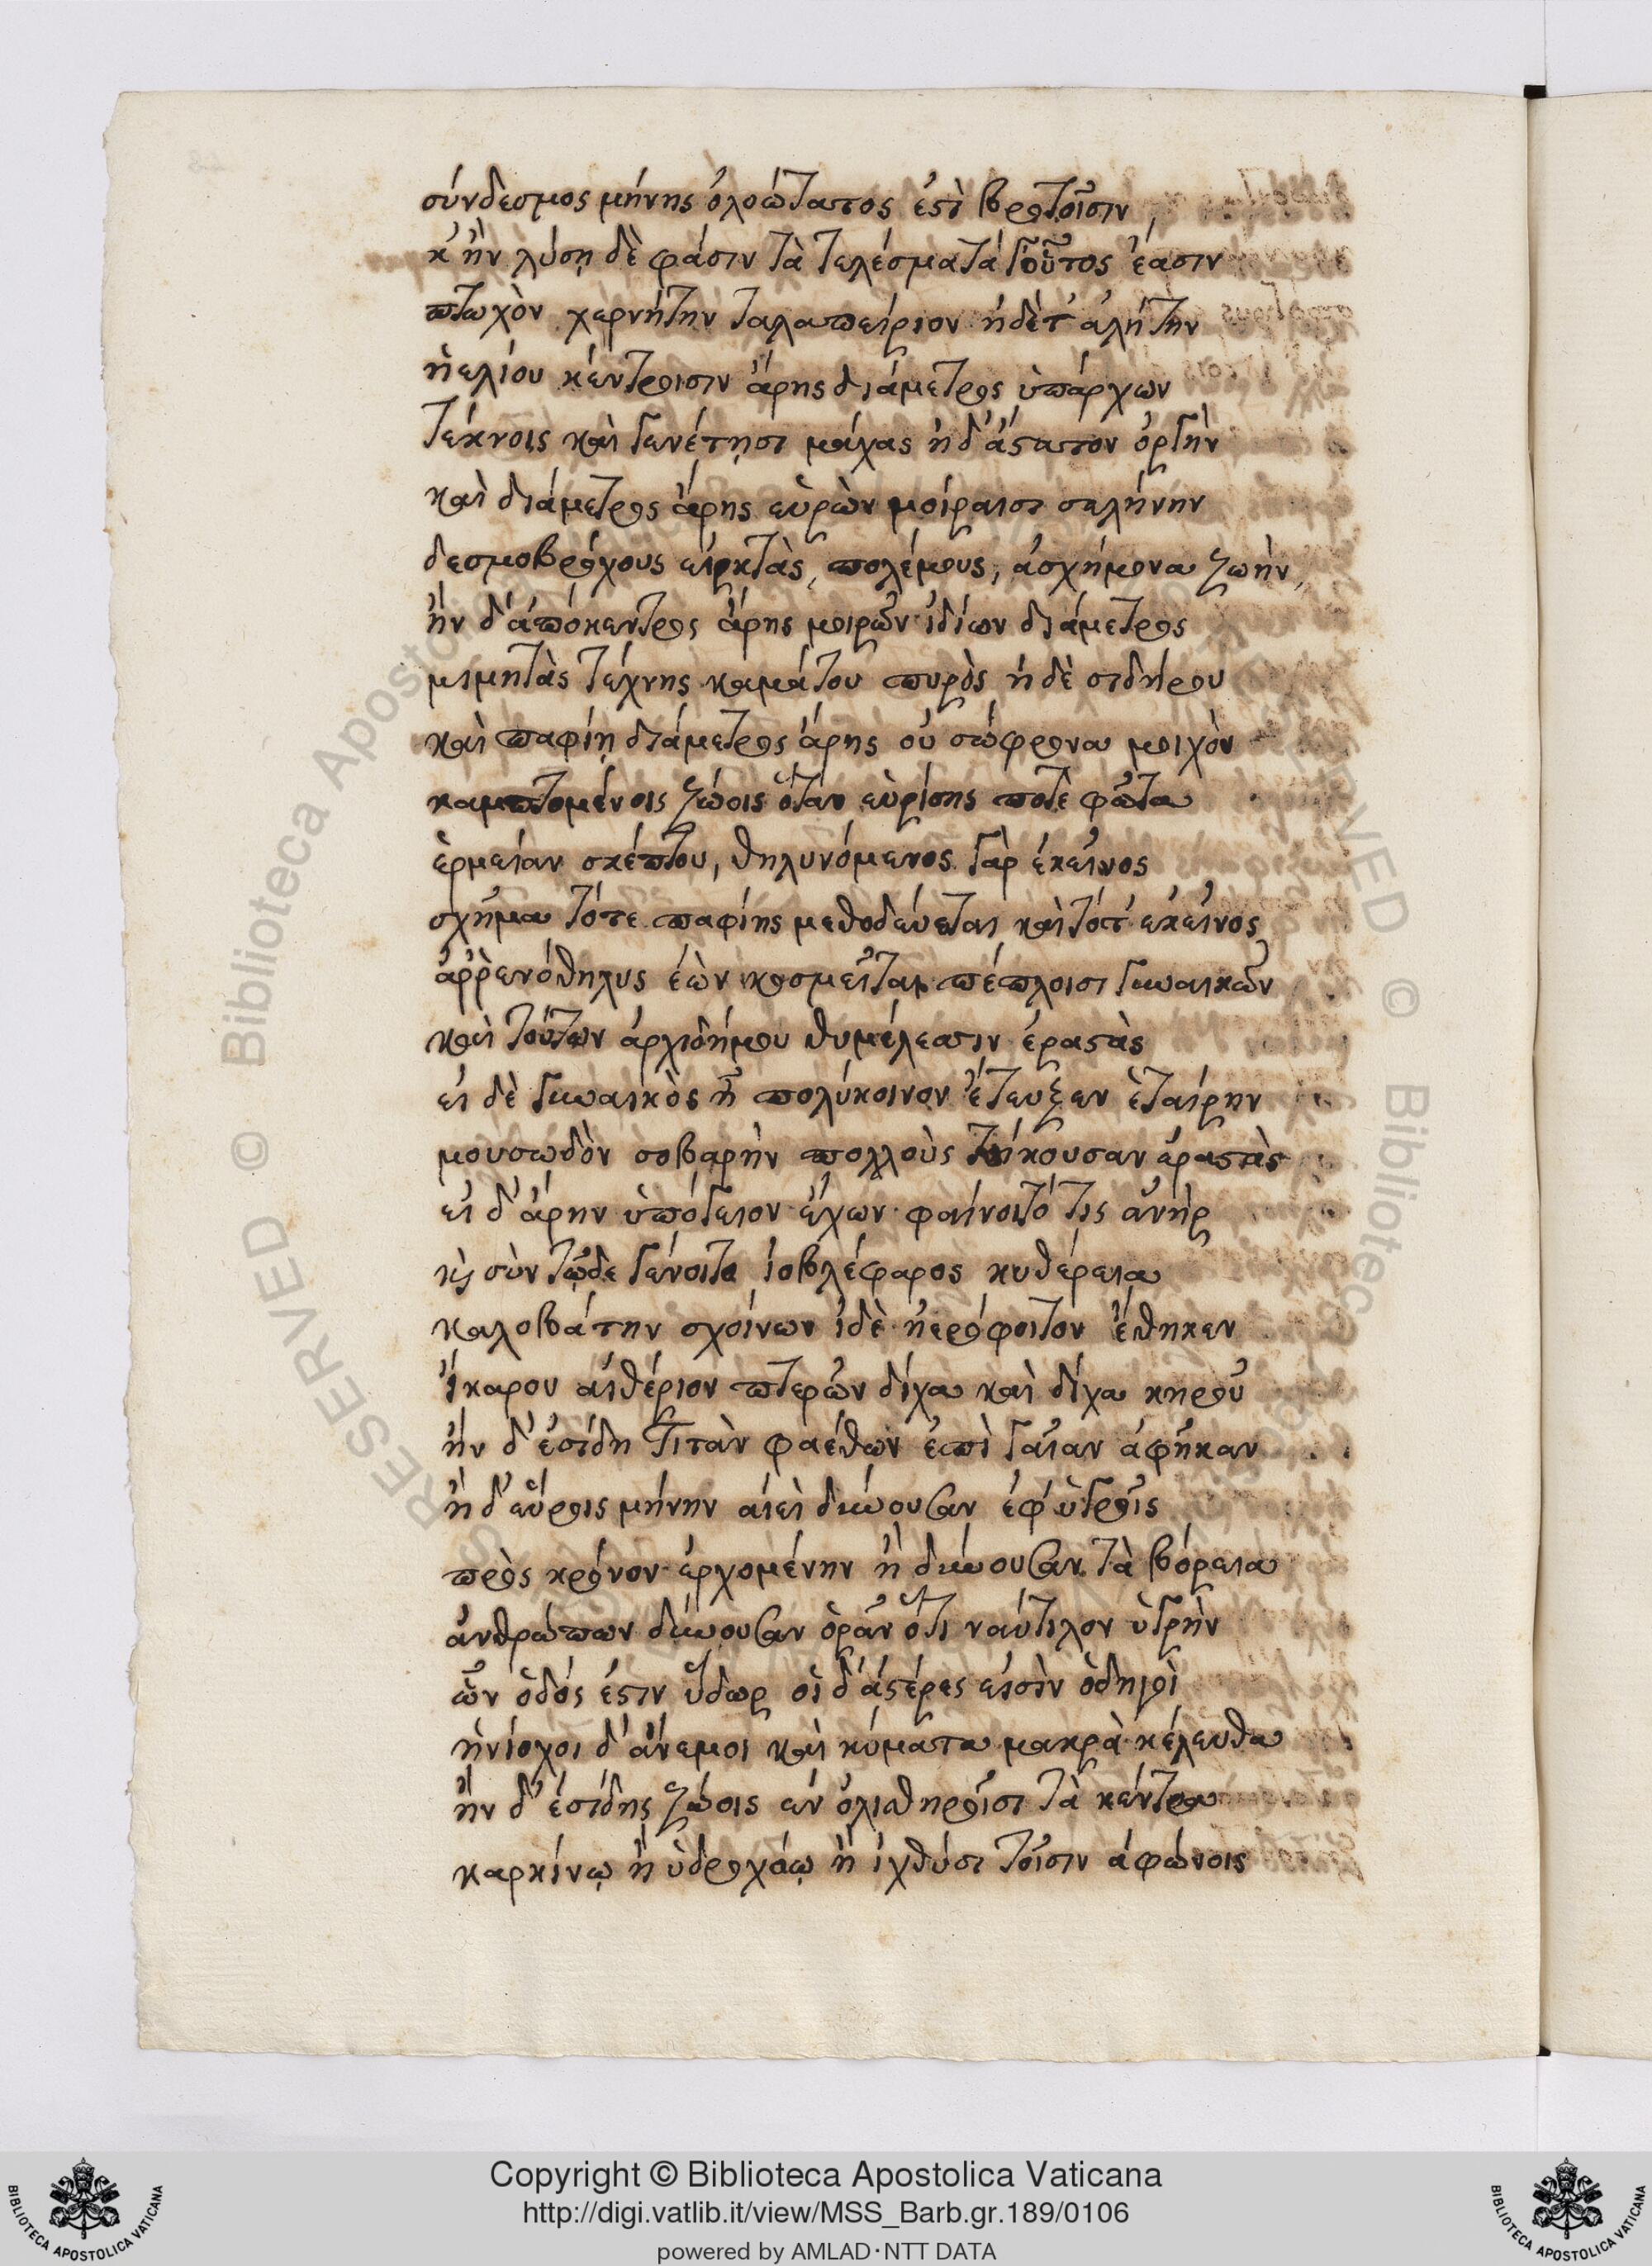 σύνδεσμος μήνης ὀλοώτατος ἐστὶ βροτοῖσιν
κ' ἢν λύσῃ δὲ φάσιν τὰ τελέσματά γ' οὗτος ἐάσιν
πτωχὸν χερνήτην ταλαπείριον ἠδέ τ' ἀλήτην
ἠελίου κέντροισιν ἄρης διάμετρος ὑπάρχων
τέκνοις καὶ γενέτῃσι μάχας ἠδ' ἄστατον ὀργὴν
καὶ διάμετρος ἄρης εὑρὼν μοίραισι σελήνην
δεσμοβρόχους εἱρκτὰς, πολέμους, ἀσχήμονα ζωὴν,
ἢν δ' ἀπόκεντρος ἄρης μοιρῶν ἰδίων διάμετρος
μιμητὰς τέχνης καμάτου πυρὸς ἠδὲ σιδήρου
καὶ παφίῃ διάμετρος ἄρης οὐ σώφρονα μοιχὸν
καμπτομένοις ζώοις ὅταν εὑρίσῃς ποτὲ φῶτα
ἑρμείαν σκέπτου, θηλυνόμενος γὰρ ἐκεῖνος
σχῆμα τότε παφίης μεθοδεύεται καὶ τότ' ἐκεῖνος
ἀῤῥενόθηλυς ἐὼν κοσμεῖται πέπλοισι γυναικῶν
καὶ τούτων ἀρχιδήμου θυμέλεσιν ἐραστὰς
εἰ δὲ γυναικὸς ἦ πολύκοινον ἔτευξεν ἑταίρην
μουσωδὸν σοβαρὴν πολλοὺς τήκουσαν ἐραστὰς
εἰ δ' ἄρην ὑπόγειον ἔχων φαίνοιτό τις ἀνὴρ
κὶ σὺν τῷδε γένοιτο ἰοβλέφαρος κυθέρεια
καλοβάτην σχοίνων ἰδὲ ἠερόφοιτον ἔθηκεν
ἴκαρον αἰθέριον πτερῶν δίχα καὶ δίχα κηροῦ
ἢν δ' ἐσίδη τιτὰν φαέθων ἐπὶ γαῖαν ἀφῆκαν
ἢ δ' εὕροις μήνην αἰεὶ δύνουσαν ἐφ' ὑγροῖς
πρὸς κρόνον ἐρχομένην ἢ δύνουσαν τὰ βόρεια
ἀνθρώπων δύνουσαν ὁρᾶν ὅτι ναύτιλον ὑγρὴν
ὧν ὁδός ἐστιν ὕδωρ οἱ δ' ἀστέρες εἰσὶν ὁδηγοὶ
ἡνίοχοι δ' ἄνεμοι καὶ κύματα μακρὰ κέλευθα
ἢν δ' ἐσίδῃς ζώοις ἐν ὀλισθηροῖσι τὰ κέντρα
καρκίνῳ ἢ ὑδροχόῳ ἢ ἰχθύσι τοῖσιν ἀφώνοις
Copyright © Biblioteca Apostolica Vaticana
http://digi.vatlib.it/view/MSS_Barb.gr.189/0106
powered by AMLAD·NTT DATA
BIBLIOTECA APOSTOLICA VATICANA
BIBLIOTECA APOSTOLICA VATICANA